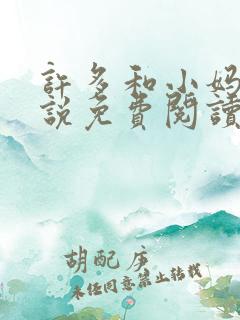 許多和小妈
説免費閱讀
胡配序
未经同意禁止转载